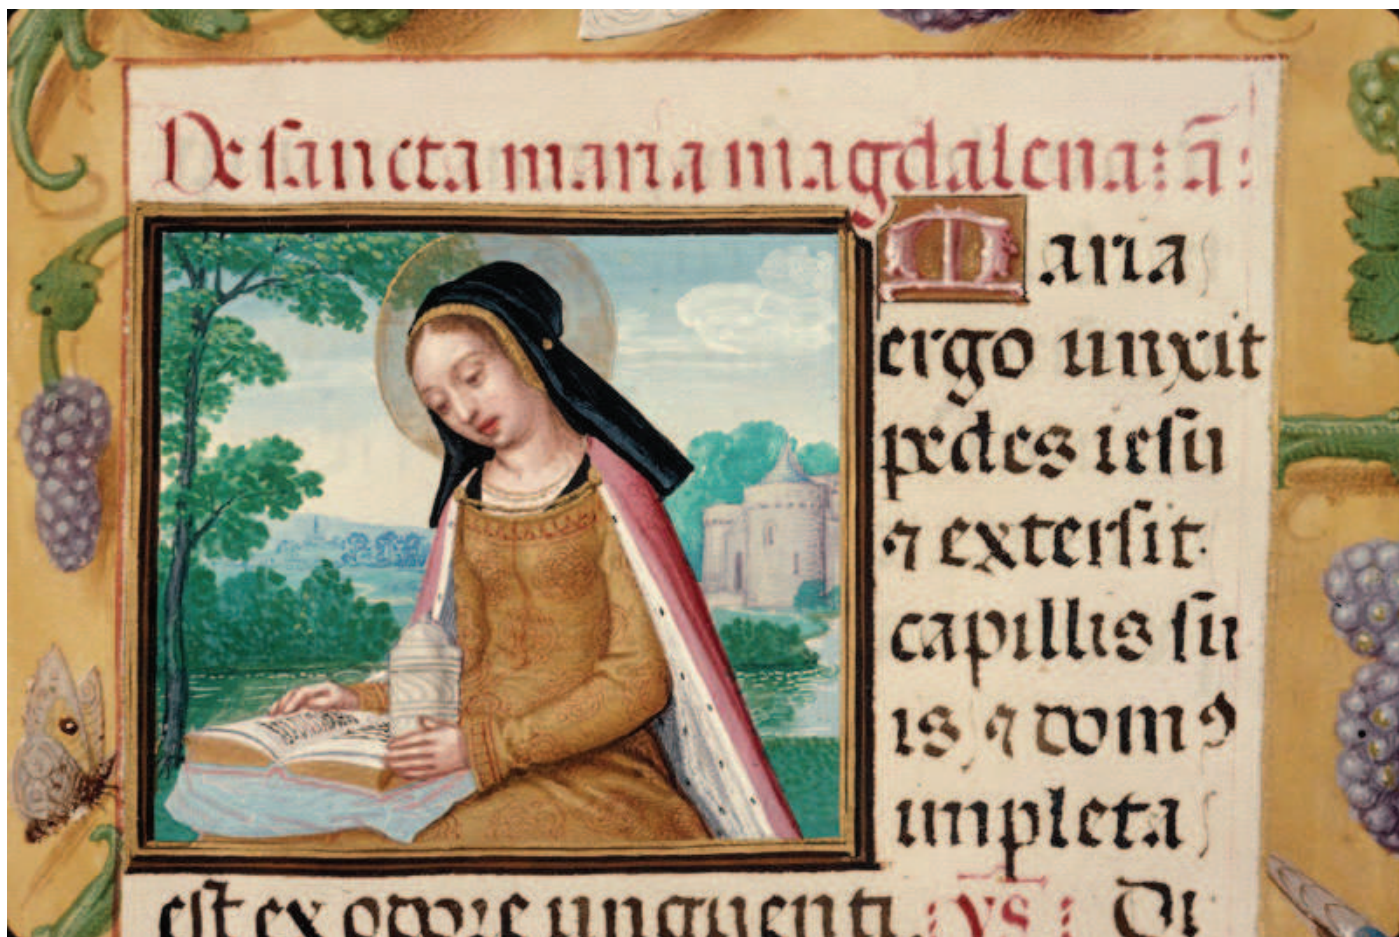 De sancta maria magdalena: ā:
Maria
ergo unxit
pedes iesu
⁊ extersit
capillis su
is ⁊ domꝰ
impleta
est ex odore unguenti. v̄s: Di